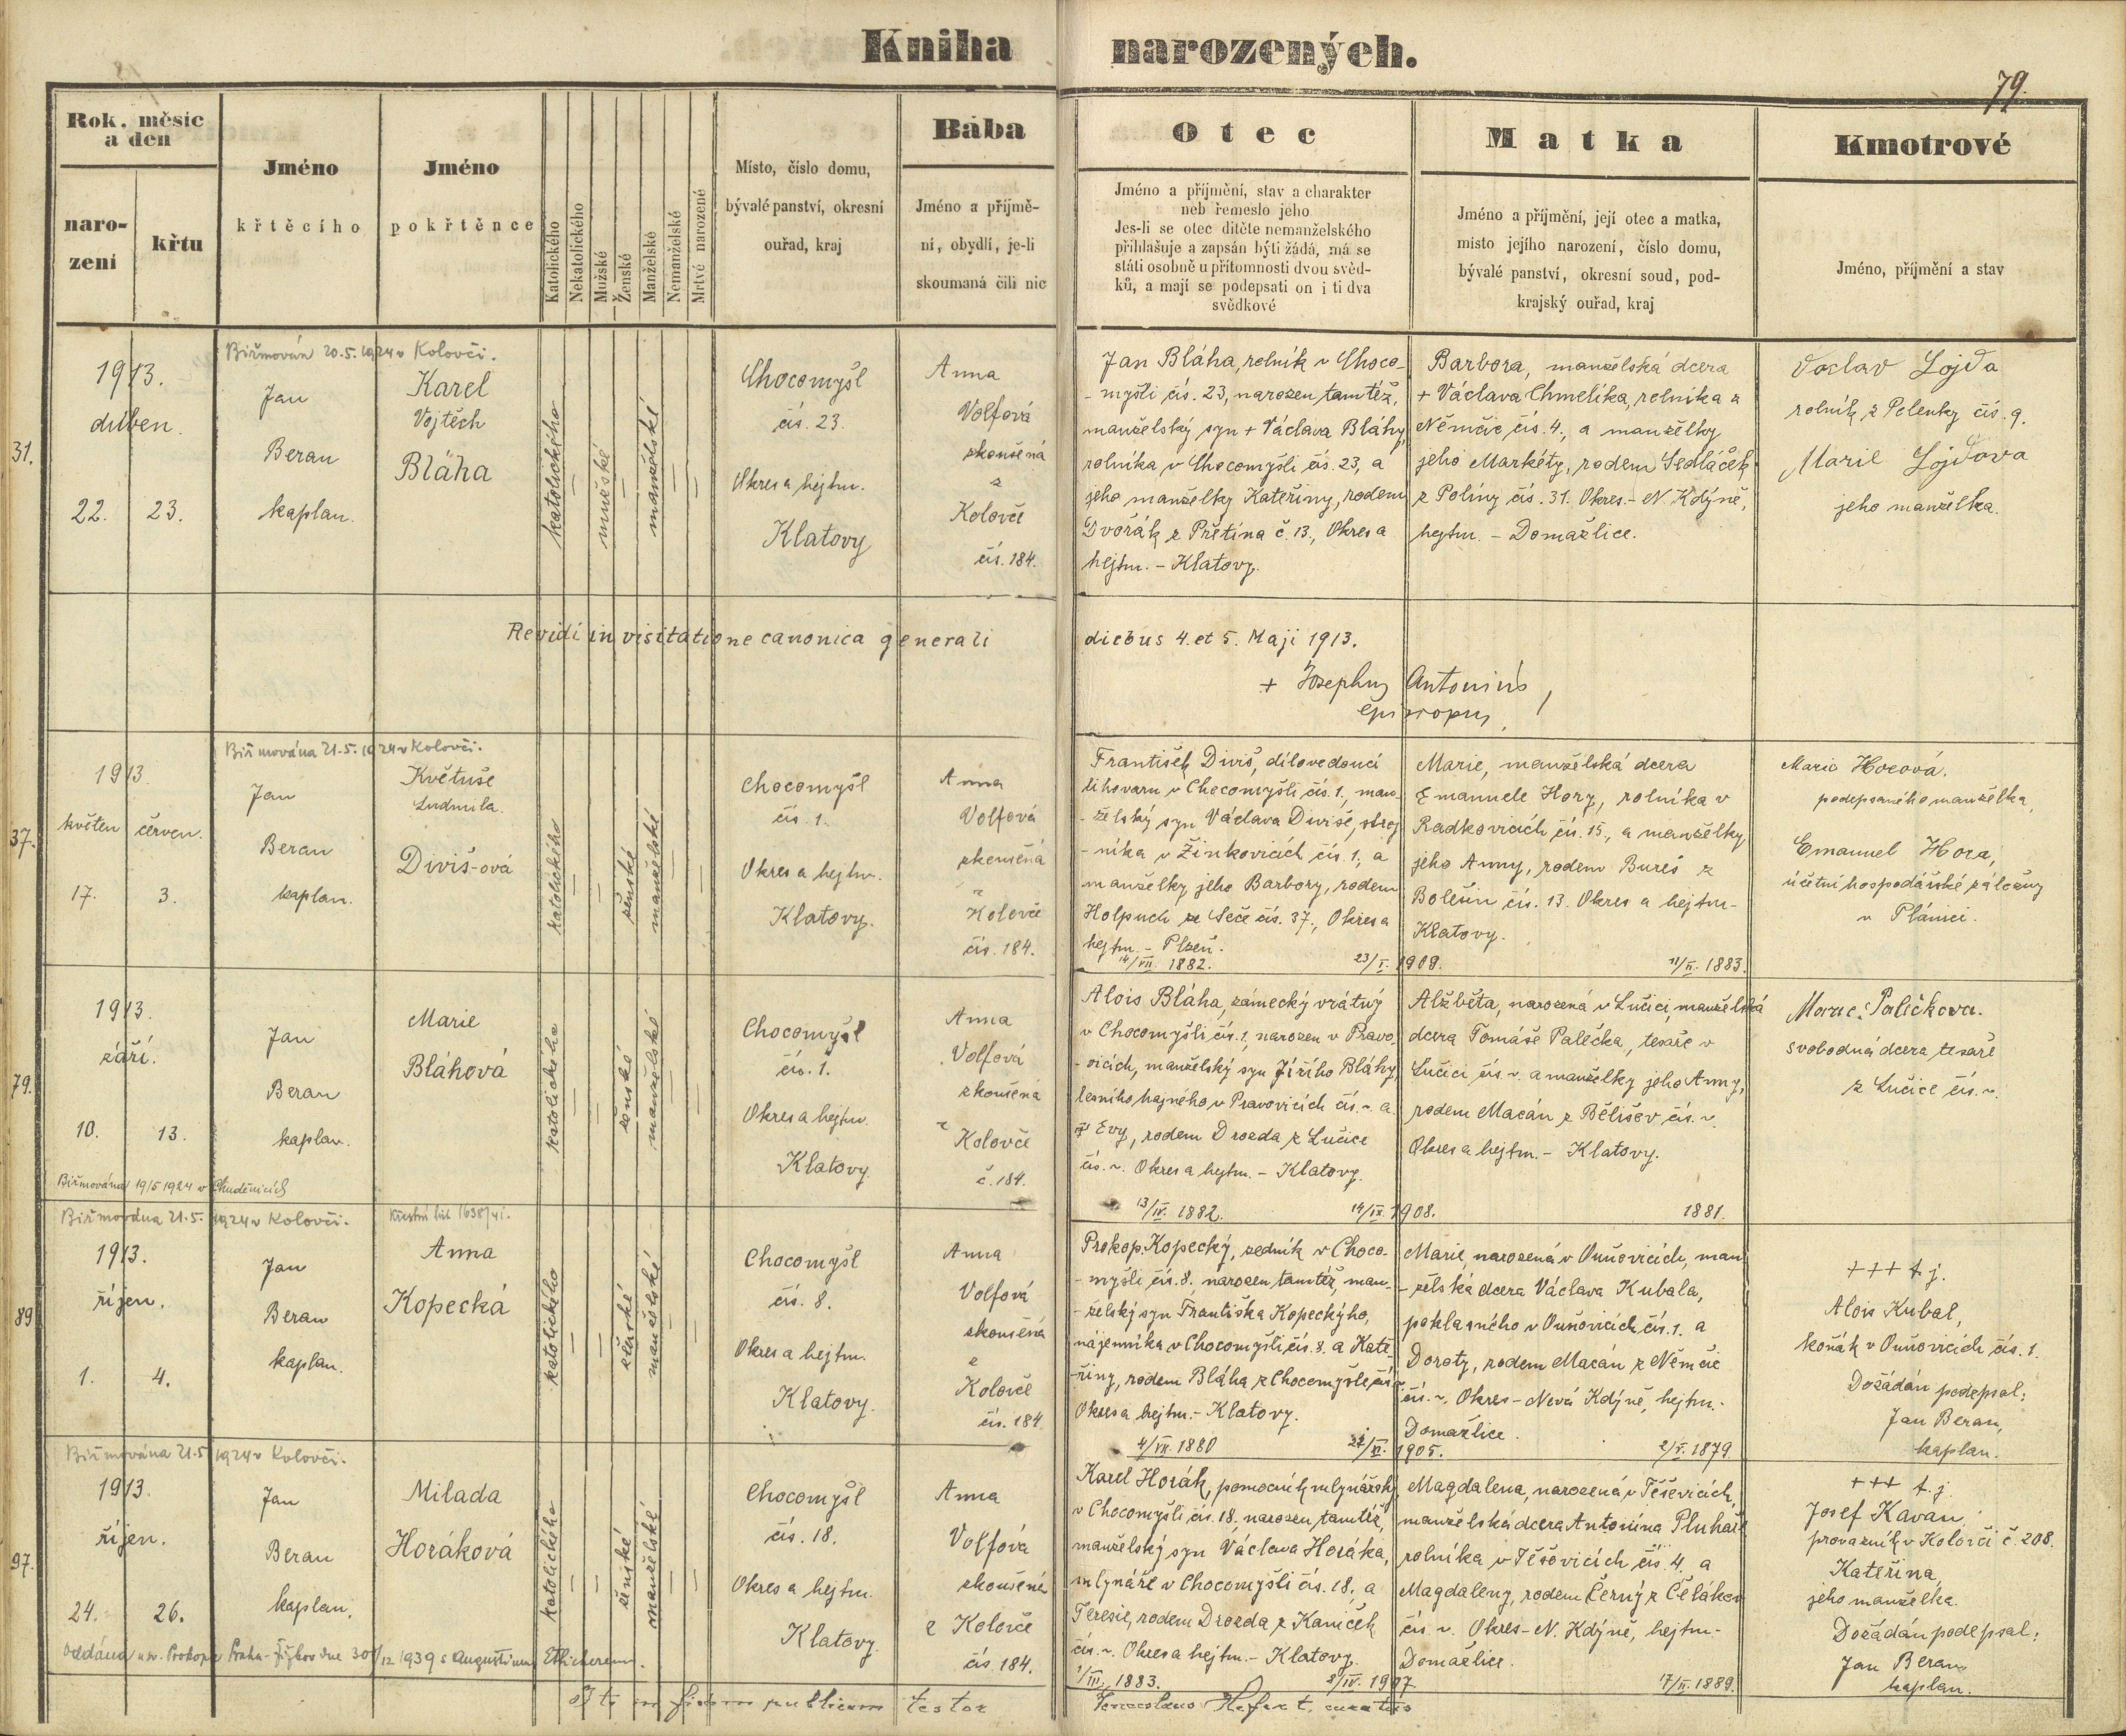 Kniha narozených.
79.
Rok, měsíc a den
narození
křtu
Jméno křtěcího
Jméno pokřtěnce
Katolického
Nekatolického
Mužské
Ženské
Manželské
Nemanželské
Mrtvě narozené
Místo, číslo domu,
bývalé panství, okresní
ouřad, kraj
Bába
Jméno a příjmě-
ní, obydlí, je-li
skoumaná čili nic
Otec
Jméno a příjmění, stav a charakter
neb řemeslo jeho
Jes-li se otec dítěte nemanželského
přihlašuje a zapsán býti žádá, má se
státi osobně u přítomnosti dvou svěd-
ků, a mají se podepsati on i ti dva
svědkové
Matka
Jméno a příjmění, její otec a matka,
misto jejího narození, číslo domu,
bývalé panství, okresní soud, pod-
krajský ouřad, kraj
Kmotrové
Jméno, příjmění a stav
31.
1913.
duben.
22. 23.
Biřmován 20.5.1924 v Kolovči.
Jan
Beran
kaplan.
Karel
Vojtěch
Bláha
katolického
mužské
manželské
Chocomyšl
čís. 23.
Okres a hejtm.
Klatovy
Anna
Volfová
zkoušená
z
Kolovče
čís. 184.
Jan Bláha, rolník v Choco-
-myšli čís. 23, narozen tamtéž,
manželský syn + Václava Bláhy,
rolníka v Chocomyšli čís. 23, a
jeho manželky Kateřiny, rodem
Dvořák z Přetína č. 13., Okres a
hejtm. - Klatovy.
Barbora, manželská dcera
+ Václava Chmelíka, rolníka z
Němčic čís. 4., a manželky
jeho Markéty, rodem Sedláček
z Poliny čís. 31. Okres. - N. Kdýně,
hejtm. - Domažlice.
Václav Lojda
rolník z Pelenky čís. 9.
Marie Lojdova
jeho manželka.
Revidi in visitatione canonica generali diebus 4. et 5. Maji 1913.
+ Josephus Antonius,
episcopus.
37.
1913.
květen červen.
17. 3.
Biřmována 21.5.1924 v Kolovči.
Jan
Beran
kaplan.
Květuše
Ludmila.
Diviš-ová
katolického
ženské
manželské
Chocomyšl
čís. 1.
Okres a hejtm.
Klatovy.
Anna
Volfová
zkoušená
z
Kolovče
čís. 184.
František Diviš, dílovedoucí
lihovaru v Chocomyšli čís. 1., man-
-želský syn Václava Diviše, stroj
-níka v Žinkovicích čís. 1., a
manželky jeho Barbory, rodem
Holpuch ze Seče čís. 37., Okres a
hejtm. - Plzeň.
14/VII. 1882. 23/I. 1909.
Marie, manželská dcera
Emanuele Hory, rolníka v
Radkovicích čís. 15., a manželky
jeho Anny, rodem Bureš z
Bolešin čís. 13. Okres a hejtm-
Klatovy.
11/II. 1883.
Marie Horová.
podepsaného manželka,
Emanuel Hora,
účetní hospodářské záložny
v Plánici.
79.
1913.
září.
10. 13.
Biřmována 19/5 1924 v Chuděnicích
Jan
Beran
kaplan.
Marie
Bláhová
katolického
ženské
manželské
Chocomyšl
čís. 1.
Okres a hejtm.
Klatovy.
Anna
Volfová
zkoušená
z Kolovče
č. 184.
Alois Bláha, zámecký vrátný
v Chocomyšli čís. 1, narozen v Pravo-
-vicích, manželský syn Jiřího Bláhy,
lesního hajného v Pravovicích čís. ~ a
Evy, rodem Drozda z Lučice
čís. ~. Okres a hejtm. - Klatovy.
13/IV. 1882. 14/IX. 1908.
Alžběta, narozená v Lučici, manželská
dcera Tomáše Palečka, tesaře v
Lučici čís. ~. a manželky jeho Anny,
rodem Macán z Bělišev čís. ~.
Okres a hejtm. - Klatovy.
1881.
Marie Palečkova.
svobodná dcera tesaře
z Lučice čís. ~.
89.
Biřmována 21.5.1924 v Kolovči.
1913.
říjen.
1. 4.
Jan
Beran
kaplan.
Křestní list 1638/41.
Anna
Kopecká
katolického
ženské
manželské
Chocomyšl
čís. 8.
Okres a hejtm.
Klatovy.
Anna
Volfová
zkoušená
z
Kolovče
čís. 184
Prokop Kopecký, zedník v Choco-
-myšli čís. 8. narozen tamtéž, man-
-želský syn Františka Kopeckýho,
nájemníka v Chocomyšli čís. 8. a Kate-
-řiny, rodem Bláha z Chocomyšle čís. ~
Okres a hejtm. - Klatovy.
4/VII. 1880 1905.
Marie, narozená v Ouňovicích, man
-želská dcera Václava Kubala,
poklasného v Ouňovicích čís. 1. a
Doroty, rodem Macán z Němčic
čís. ~. Okres - Nová Kdýně, hejtm. -
Domažlice.
2/V. 1879.
+++ t. j.
Alois Kubal,
koňák v Ouňovicích čís. 1.
Dožádán podepsal:
Jan Beran,
kaplan.
97.
Biřmována 21.5 1924 v Kolovči.
1913.
říjen.
24. 26.
Jan
Beran
kaplan.
Milada
Horáková
katolického
ženské
manželské
Chocomyšl
čís. 18.
Okres a hejtm.
Klatovy.
Anna
Volfová
zkoušená
z Kolovče
čís. 184.
Karel Horák, pomocník mlynářský
v Chocomyšli čís. 18. narozen tamtéž,
manželský syn Václava Horáka,
mlynáře v Chocomyšli čís. 18, a
Terezie, rodem Drozda z Kaniček
čís. ~. Okres a hejtm. - Klatovy.
1/III. 1883. 8/IV. 1907
Magdalena, narozená v Těšovicích,
manželská dcera Antonína Pluhař
rolníka v Těšovicích čís. 4. a
Magdaleny, rodem Černý z Čéláken
čís. ~. Okres - N. Kdýně, hejtm. -
Domažlice.
17/II. 1889.
+++ t. j.
Josef Kavan,
provazník v Kolovči č. 208.
Kateřina,
jeho manželka.
Dožádán podepsal:
Jan Beran
kaplan.
Oddána u sv. Prokopa Praha-Žižkov dne 30/12 1939 s Augustinem
in fidem publicam testor